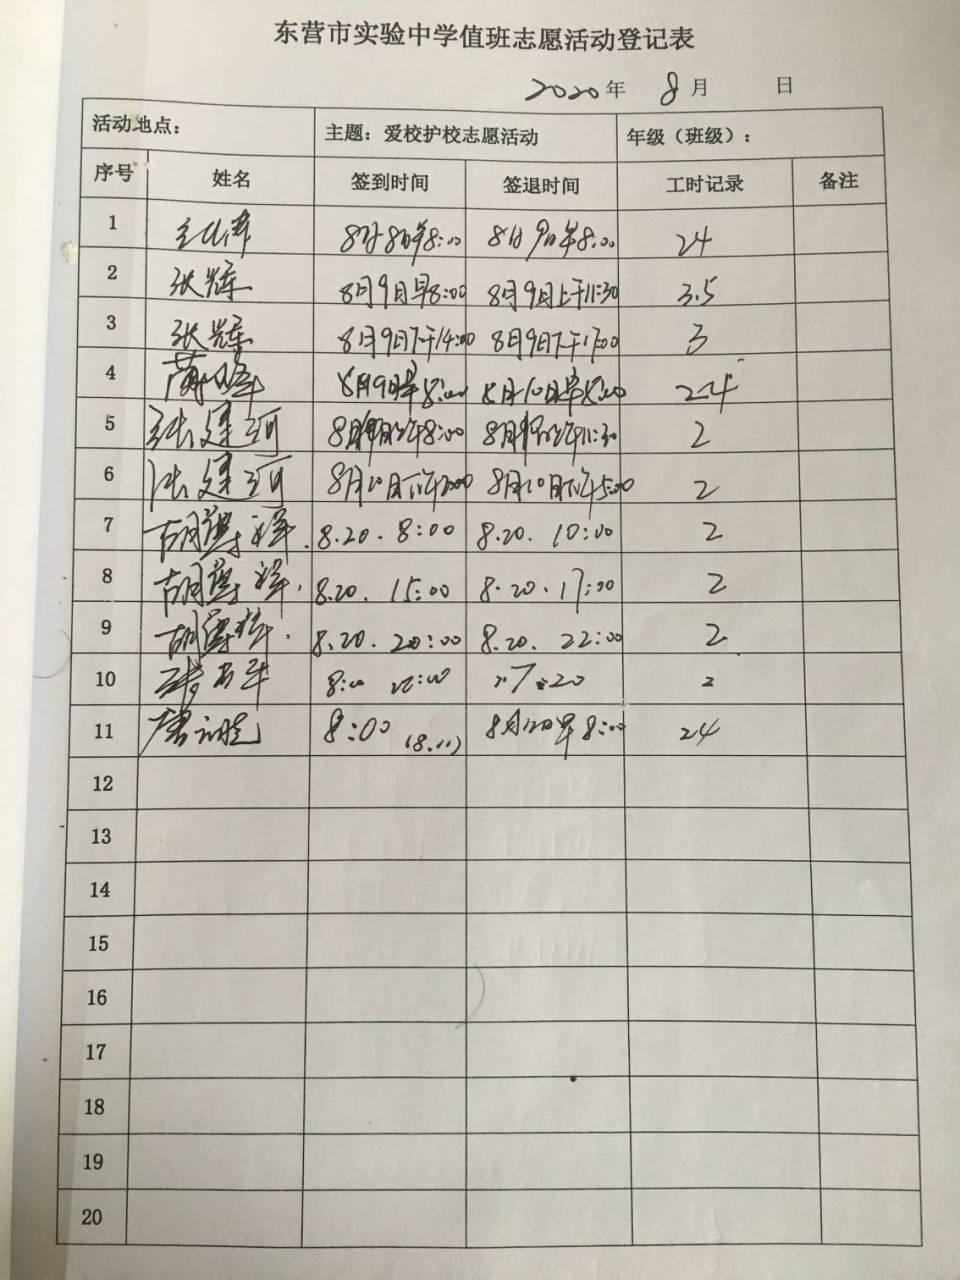 东营市实验中学值班志愿活动登记表
2020年 8月 日
活动地点： 主题：爱校护校志愿活动 年级（班级）：
序号 姓名 签到时间 签退时间 工时记录 备注
1 8月8日早8:00 8月9日早8:00 24
2 张辉 8月9日早8:00 8月9日上午11:30 3.5
3 张辉 8月9日下午14:00 8月9日下午17:00 3
4 8月9日早8:00 8月10日早8:00 24
5 张建河 8:00 11:30 2
6 张建河 8月10日下午 8月10日下午5:00 2
7 胡 8.20. 8:00 8.20. 10:00 2
8 胡 8.20. 15:00 8.20. 17:00 2
9 胡 8.20. 20:00 8.20. 22:00 2
10 8:00 2
11 8:00 (8.11) 8月12日早8:00 24
12
13
14
15
16
17
18
19
20